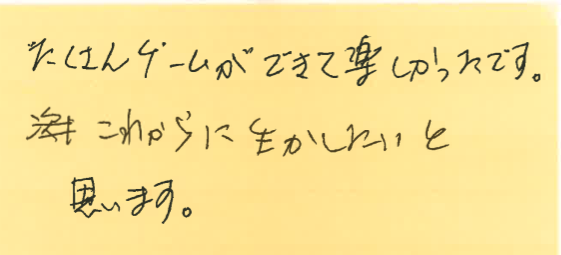 たくさんゲームができて楽しかったです。
これからに生かしたいと
思います。